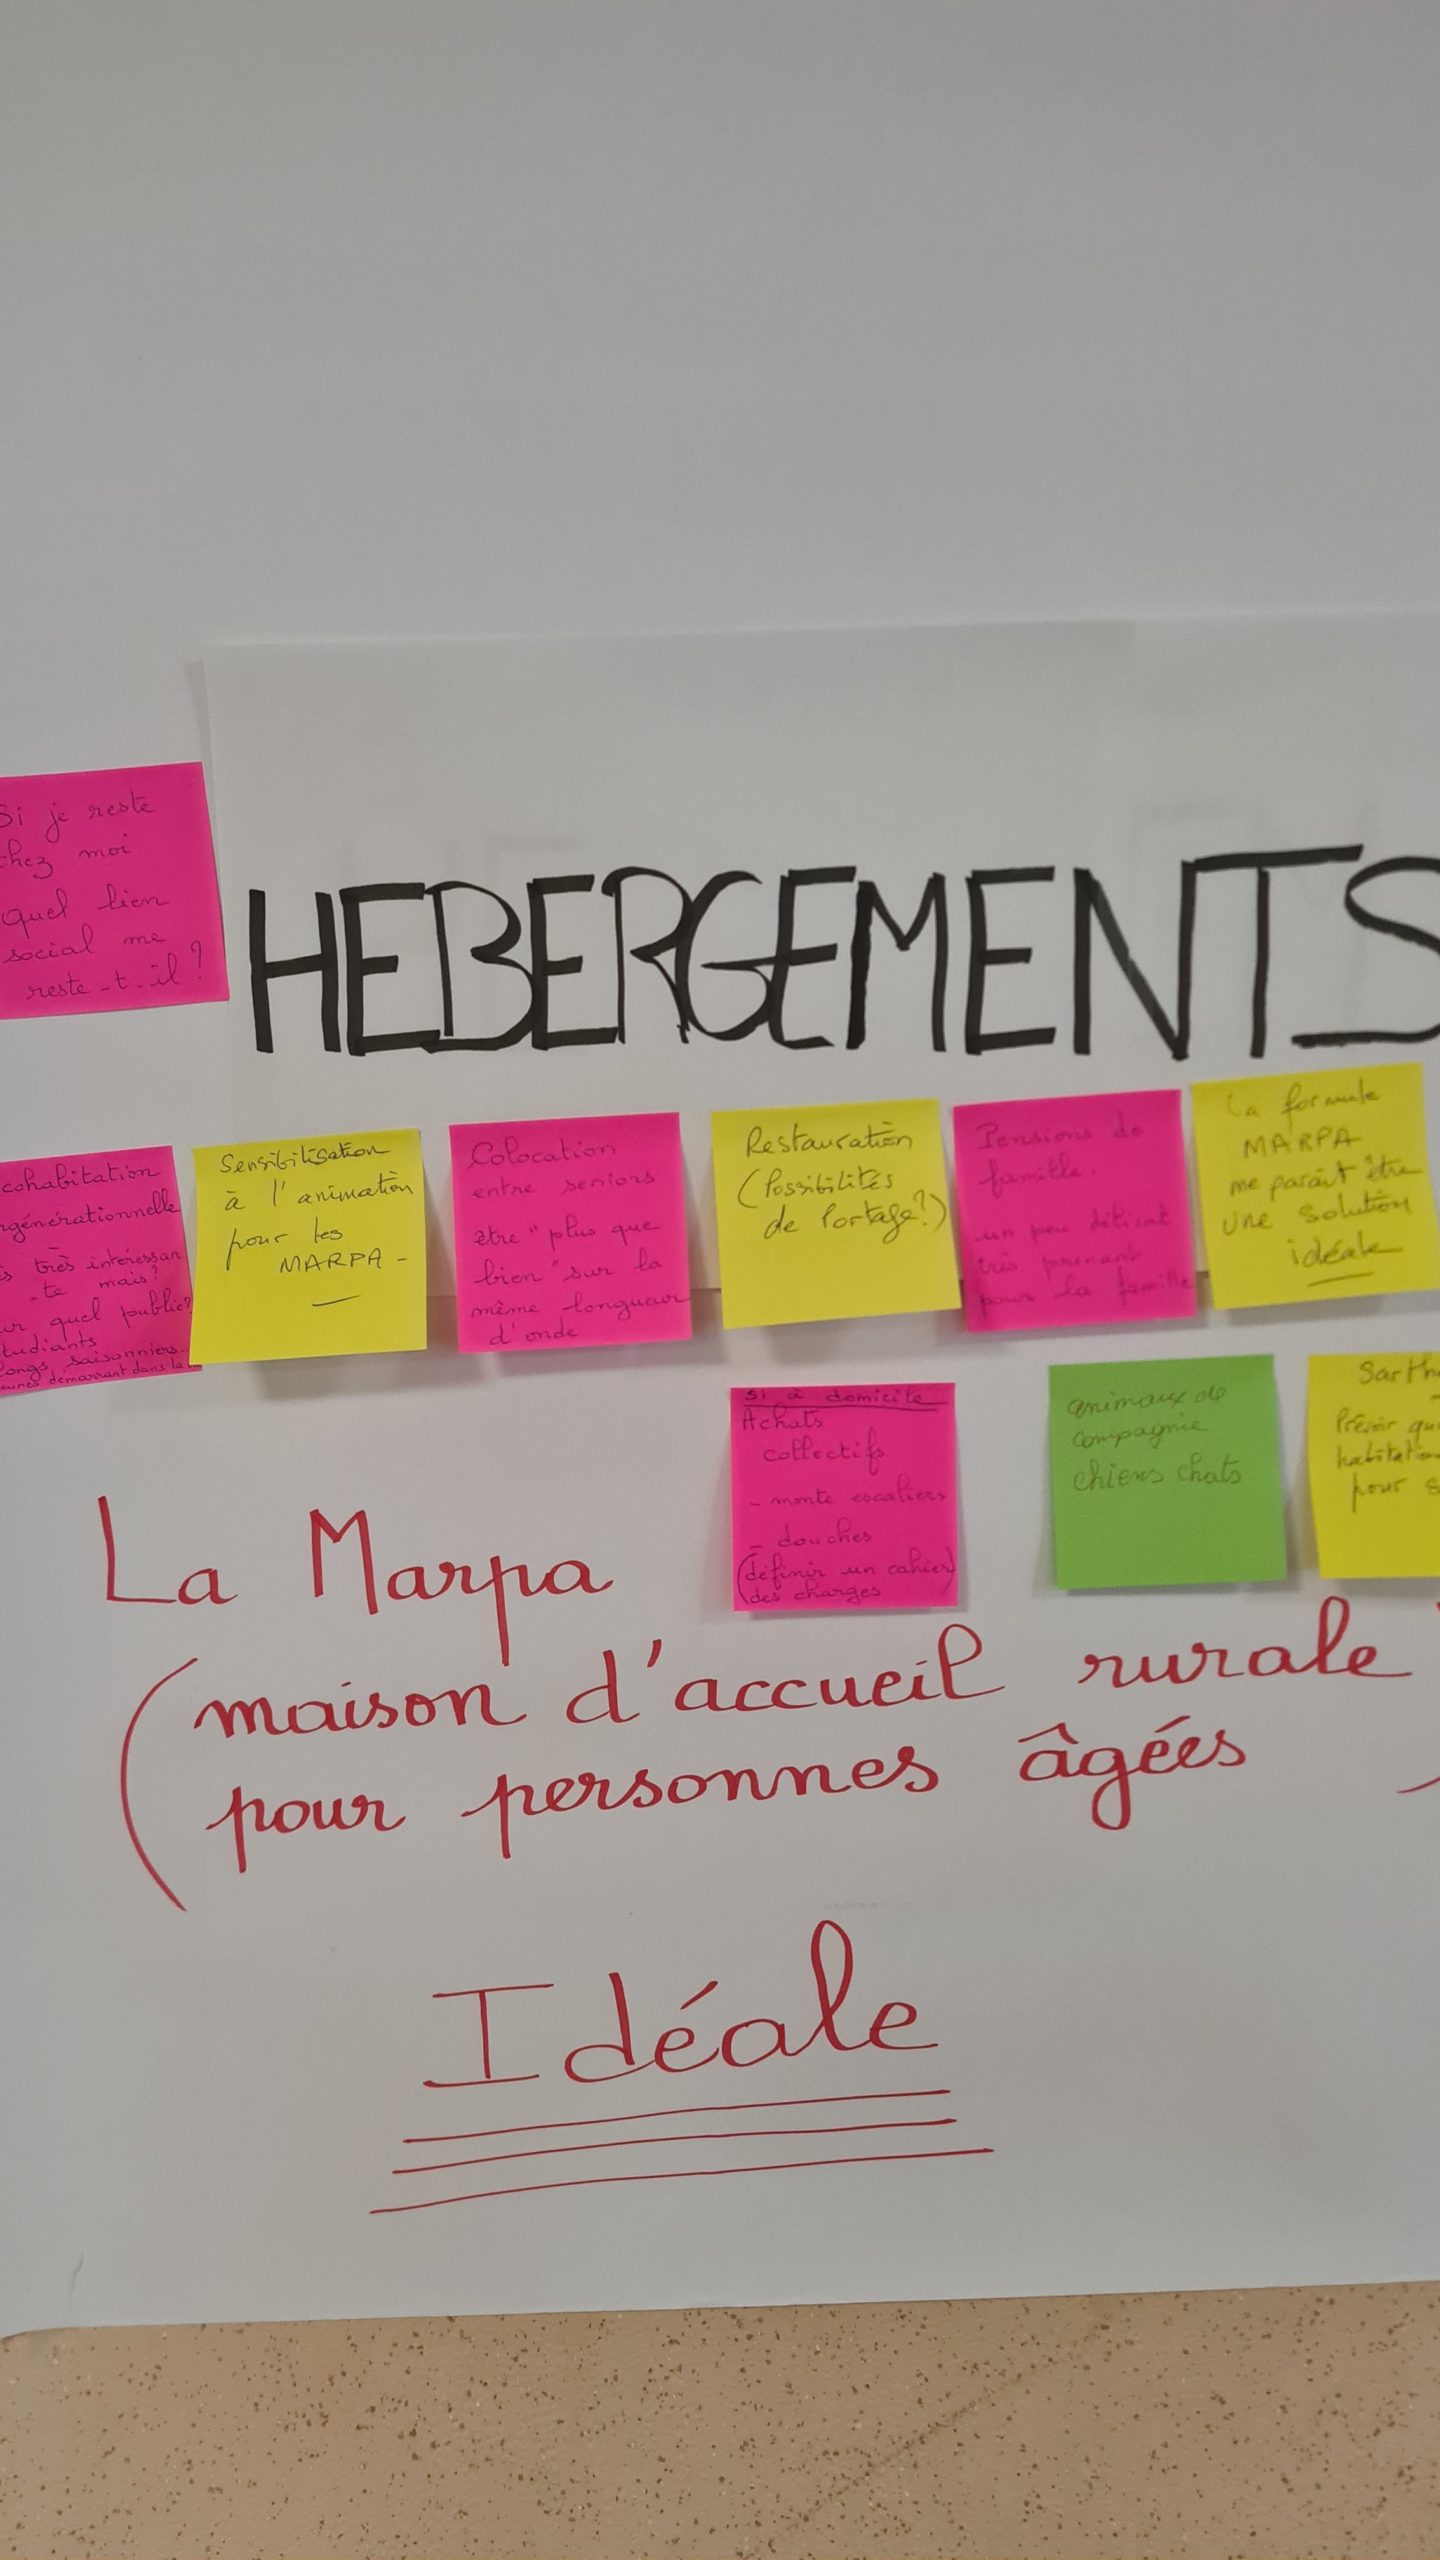 Si je reste
chez moi
quel lien
social me
reste-t-il ?
HEBERGEMENTS
cohabitation
très intéressan
-te mais ?
quel public ?
saisonniers...
démarrant dans la
Sensibilisation
à l'animation
pour les
MARPA -
Colocation
entre seniors
être "plus que
bien" sur la
même longueur
d'onde
Restauration
(Possibilités
de Portage ?)
Pensions de
famille.
un peu délicat
très prenant
pour la famille
La formule
MARPA
me parait être
une solution
idéale
Si à domicile
Achats
collectifs
- monte escaliers
- douches
(définir un cahier)
(des charges
animaux de
compagnie
chiens chats
Prévoir
pour
La Marpa
(maison d'accueil rurale
pour personnes âgées)
Idéale